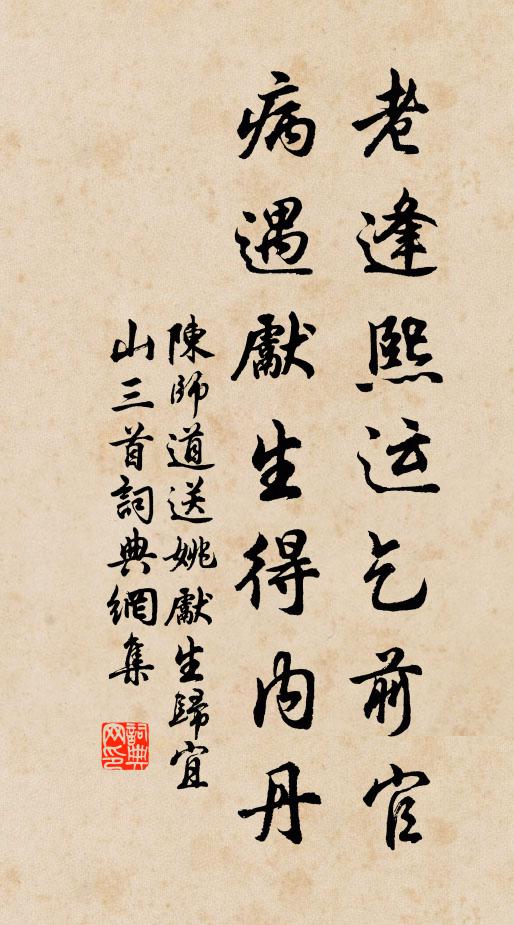 老逢熙运乞前官
病遇獻生得内丹
陳師道送姚獻生歸宜
山三首詞典網集
詞典网印